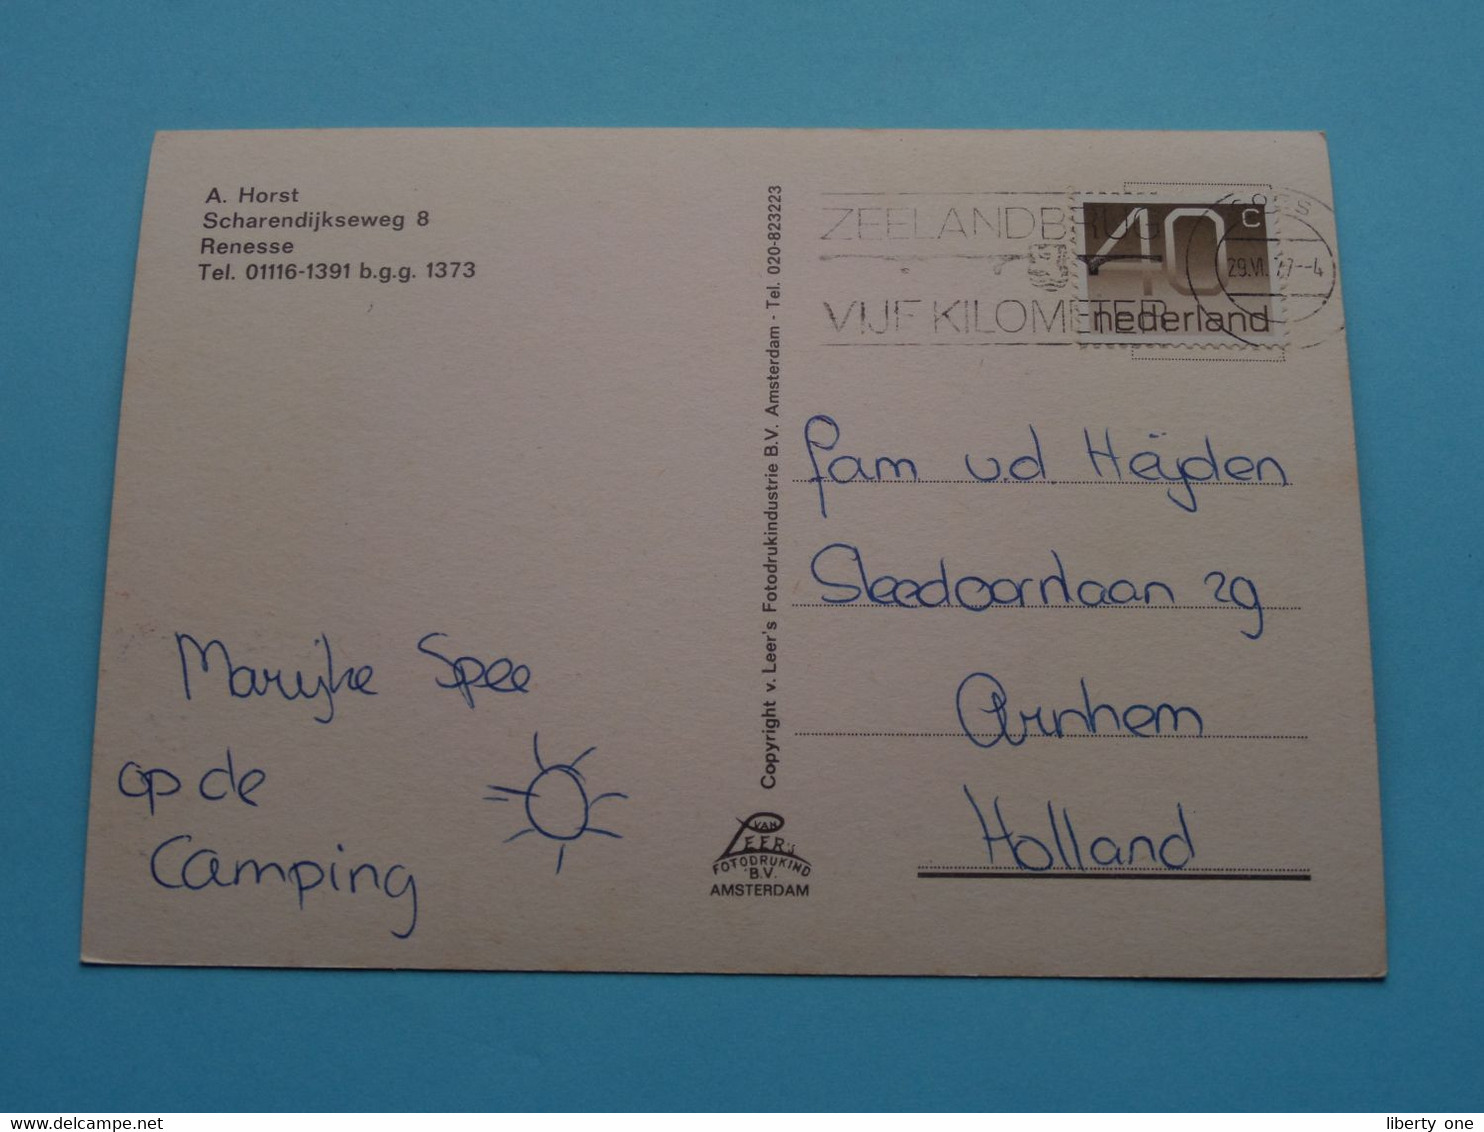 A. Horst
Scharendijkseweg 8
Renesse
Tel. 01116-1391 b.g.g. 1373
Marijke Spee
op de
Camping
Copyright v. Leer's Fotodrukindustrie B.V. Amsterdam - Tel. 020-823223
VAN
LEER'S
FOTODRUKIND
B.V.
AMSTERDAM
ZEELANDBRUG
VIJF KILOMETER
40 c
nederland
29.VI.77--4
fam v.d Heijden
Sleedoornlaan 29
Arnhem
Holland
www.delcampe.net
liberty one